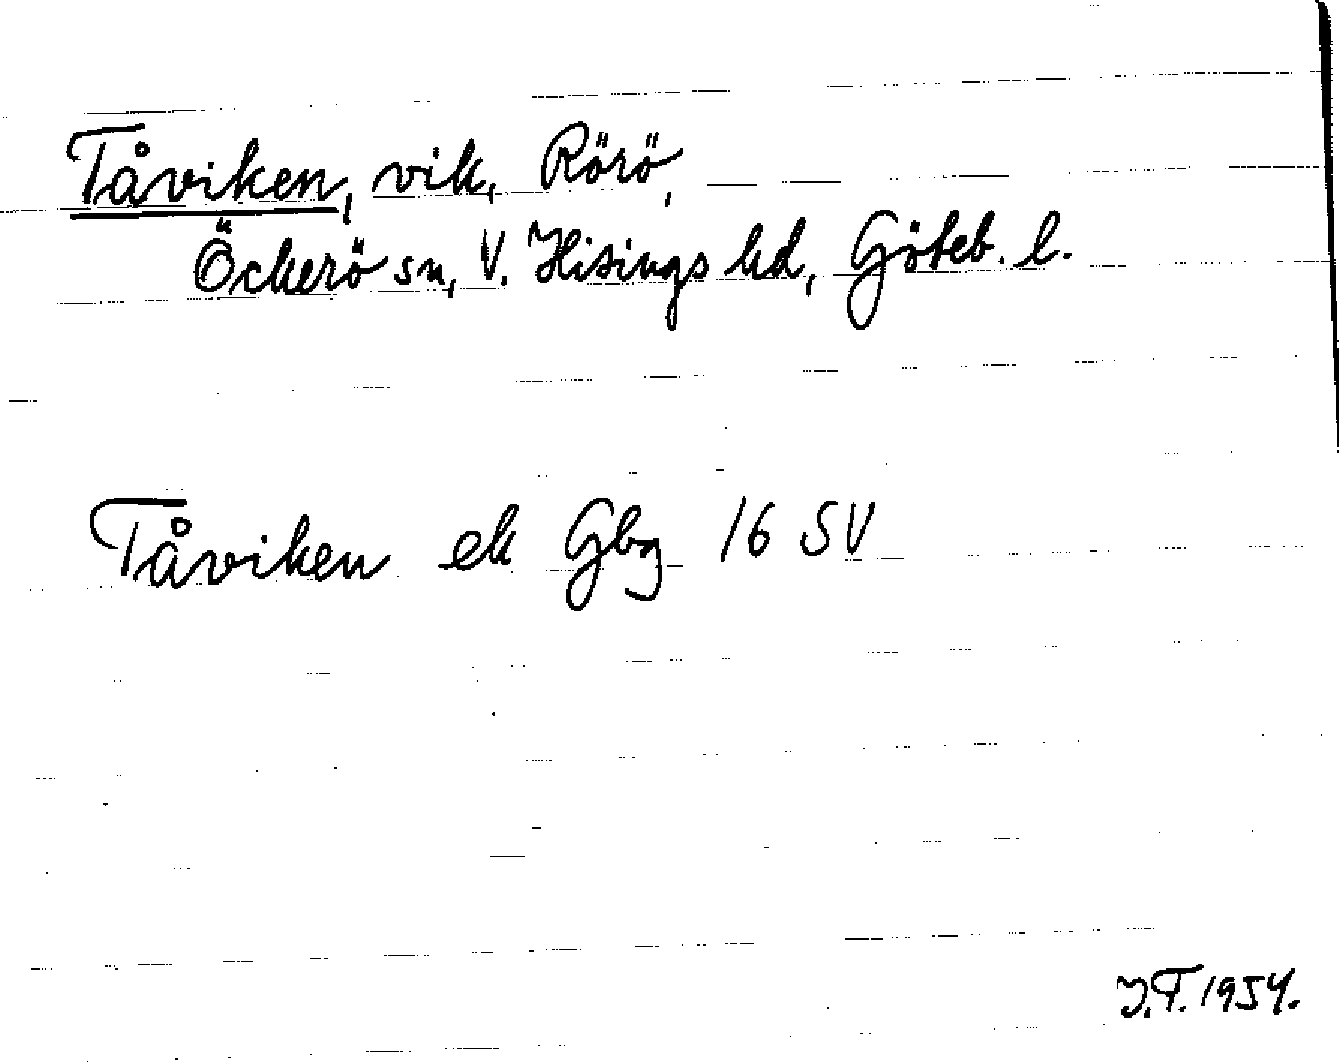 Tåviken, vik, Rörö,
Öckerö sn, V. Hisings hd, Göteb. l.
Tåviken ek Gbg 16 SV
J.F. 1954.